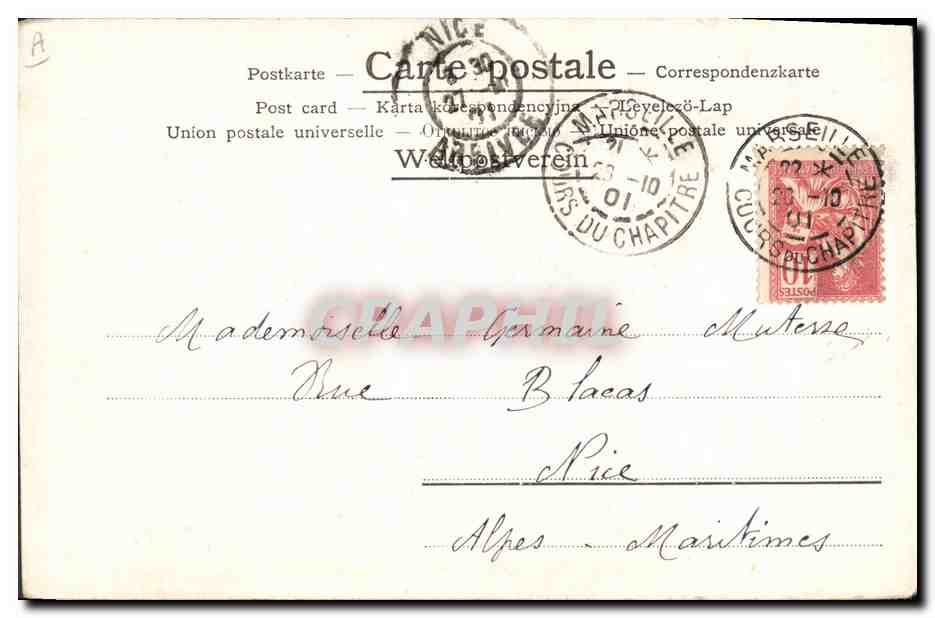 A
Carte postale
Postkarte — — Correspondenzkarte
Post card — Karta korespondencyjna — Levelezö-Lap
Union postale universelle — — Unióne postale universale
Weltpostverein
NICE
30
27
01
MARSEILLE
21 *
26 -10
01
COURS DU CHAPITRE
MARSEILLE
22 *
26 -10
01
COURS DU CHAPITRE
10
POSTES
CRAPHIL
Mademoiselle Germaine Muterse
Rue Blacas
Nice
Alpes - Maritimes